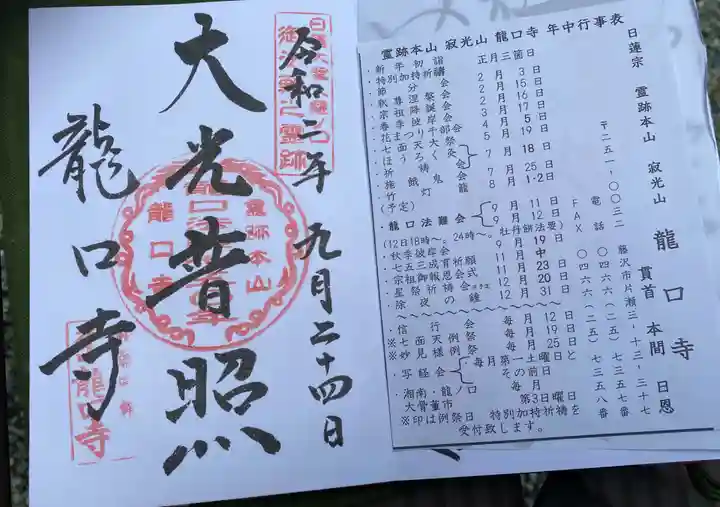 令和二年九月二十四日
大光普照
龍口寺
霊跡本山
龍口寺
龍口寺
霊跡本山 寂光山 龍口寺 年中行事表
・新年初詣 正月三箇日
・特別加持祈祷 2月3日
節分会
・釈尊涅槃会 2月15日
・宗祖降誕会 2月16日
・春季彼岸会 3月17日
・花まつり 4月
・七面天 5月19日
・ほうろく灸 7月18日
・祈祷
・施餓鬼会 7月25日
・竹灯籠 8月1・2日
(予定)
・龍口法難会 9月11日
9月12日
(12日18時～。24時～。牡丹餅法要)
・秋季彼岸会 9月19日
・七五三成育祈願 11月中
・宗祖御報恩会式 11月23日
・星祭祈祷会 12月20日
・除夜の鐘 12月31日
・信行会 毎月12日
※七面天例祭 毎月19日
※妙見様例祭 毎月25日
・写経会 毎月第一土曜日と
その前日
・湘南・龍ノ口
大骨董市 毎月第3日曜日
※印は例祭日 特別加持祈祷を
受付致します。
日蓮宗 霊跡本山 寂光山 龍口寺
貫首 本間日恩
〒二五一-〇〇三二 藤沢市片瀬三-十三-三十七
電話 〇四六六(二五)七三五七番
FAX 〇四六六(二五)七三五八番